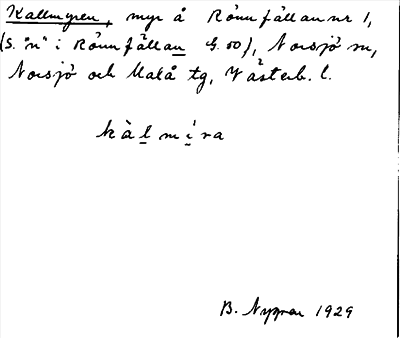 Kallmyren, myr å Rönnfällan nr 1,
(S. "n" i Rönnfällan G.00), Norsjö sn,
Norsjö och Malå tg, Västerb. l.
kàlmíra
B. Nygren 1929